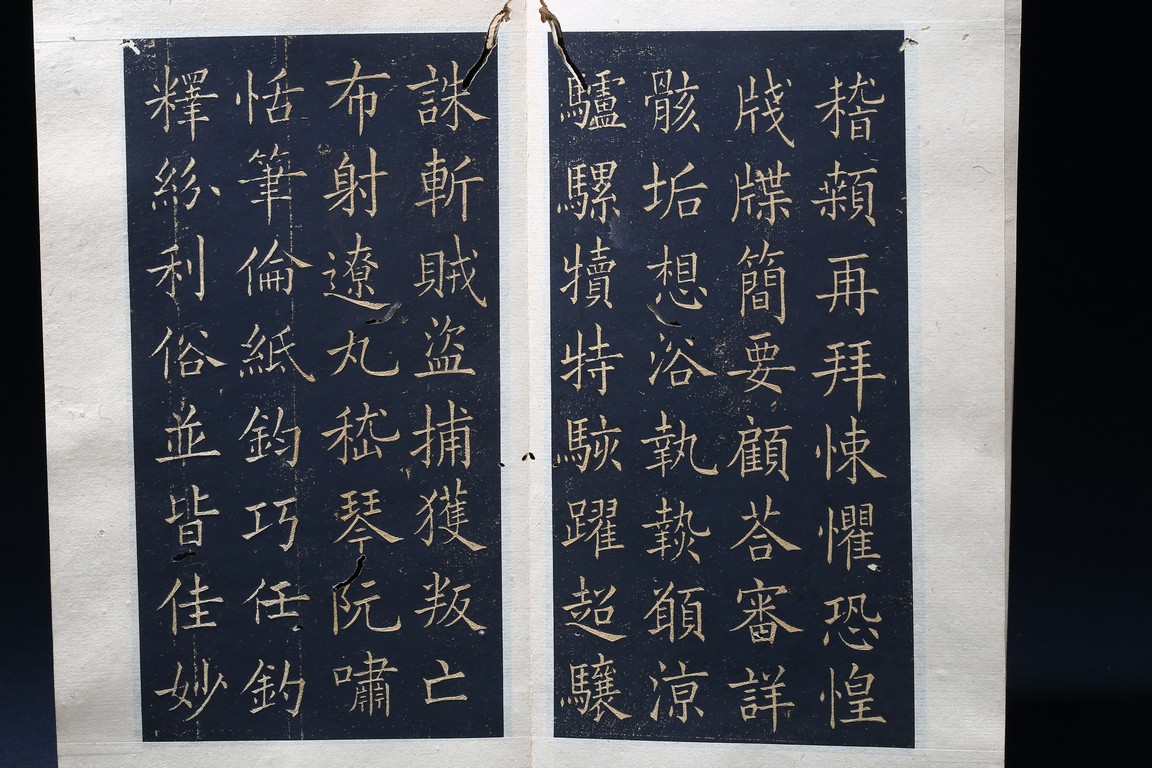 稽顙再拜悚懼恐惶
牋牒簡要顧荅審詳
骸垢想浴執熱願涼
驢騾犢特駭躍超驤
誅斬賊盜捕獲叛亡
布射遼丸嵇琴阮嘯
恬筆倫紙鈞巧任釣
釋紛利俗並皆佳妙